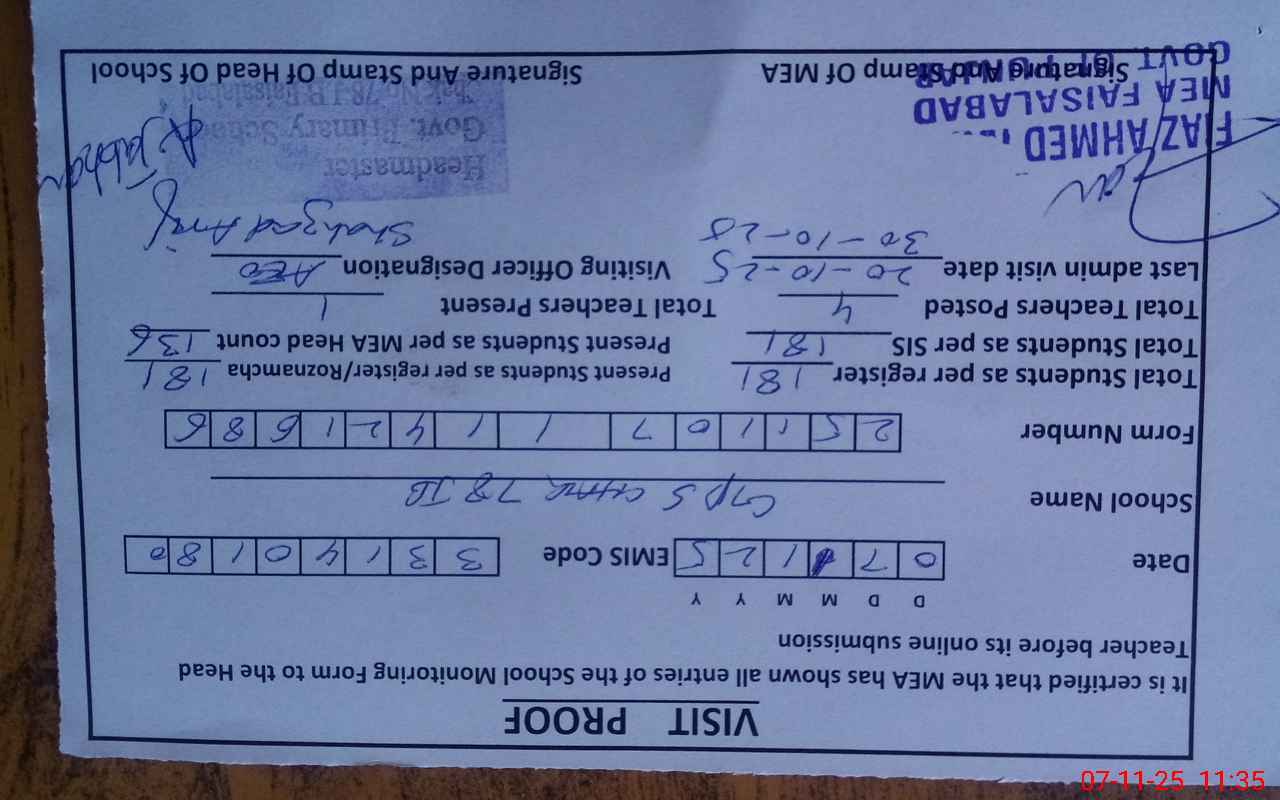 VISIT PROOF
It is certified that the MEA has shown all entries of the School Monitoring Form to the Head
Teacher before its online submission
D D M M Y Y
Date 0 7 1 1 2 5 EMIS Code 3 3 1 4 0 1 8 0
School Name GPS CHAK 78 JB
Form Number 2 5 1 1 0 7 1 1 4 2 1 6 8 6
Total Students as per register 181 Present Students as per register/Roznamcha 181
Total Students as per SIS 181 Present Students as per MEA Head count 136
Total Teachers Posted 4 Total Teachers Present 1
Last admin visit date 20-10-25 Visiting Officer Designation AEO
30-10-25 Shahzad
FIAZ AHMED
MEA FAISALABAD
GOVT. OF PUNJAB
Headmaster
Govt. Primary School
Chak No. 78-J.B Faisalabad
Signature And Stamp Of MEA Signature And Stamp Of Head Of School
07-11-25 11:35